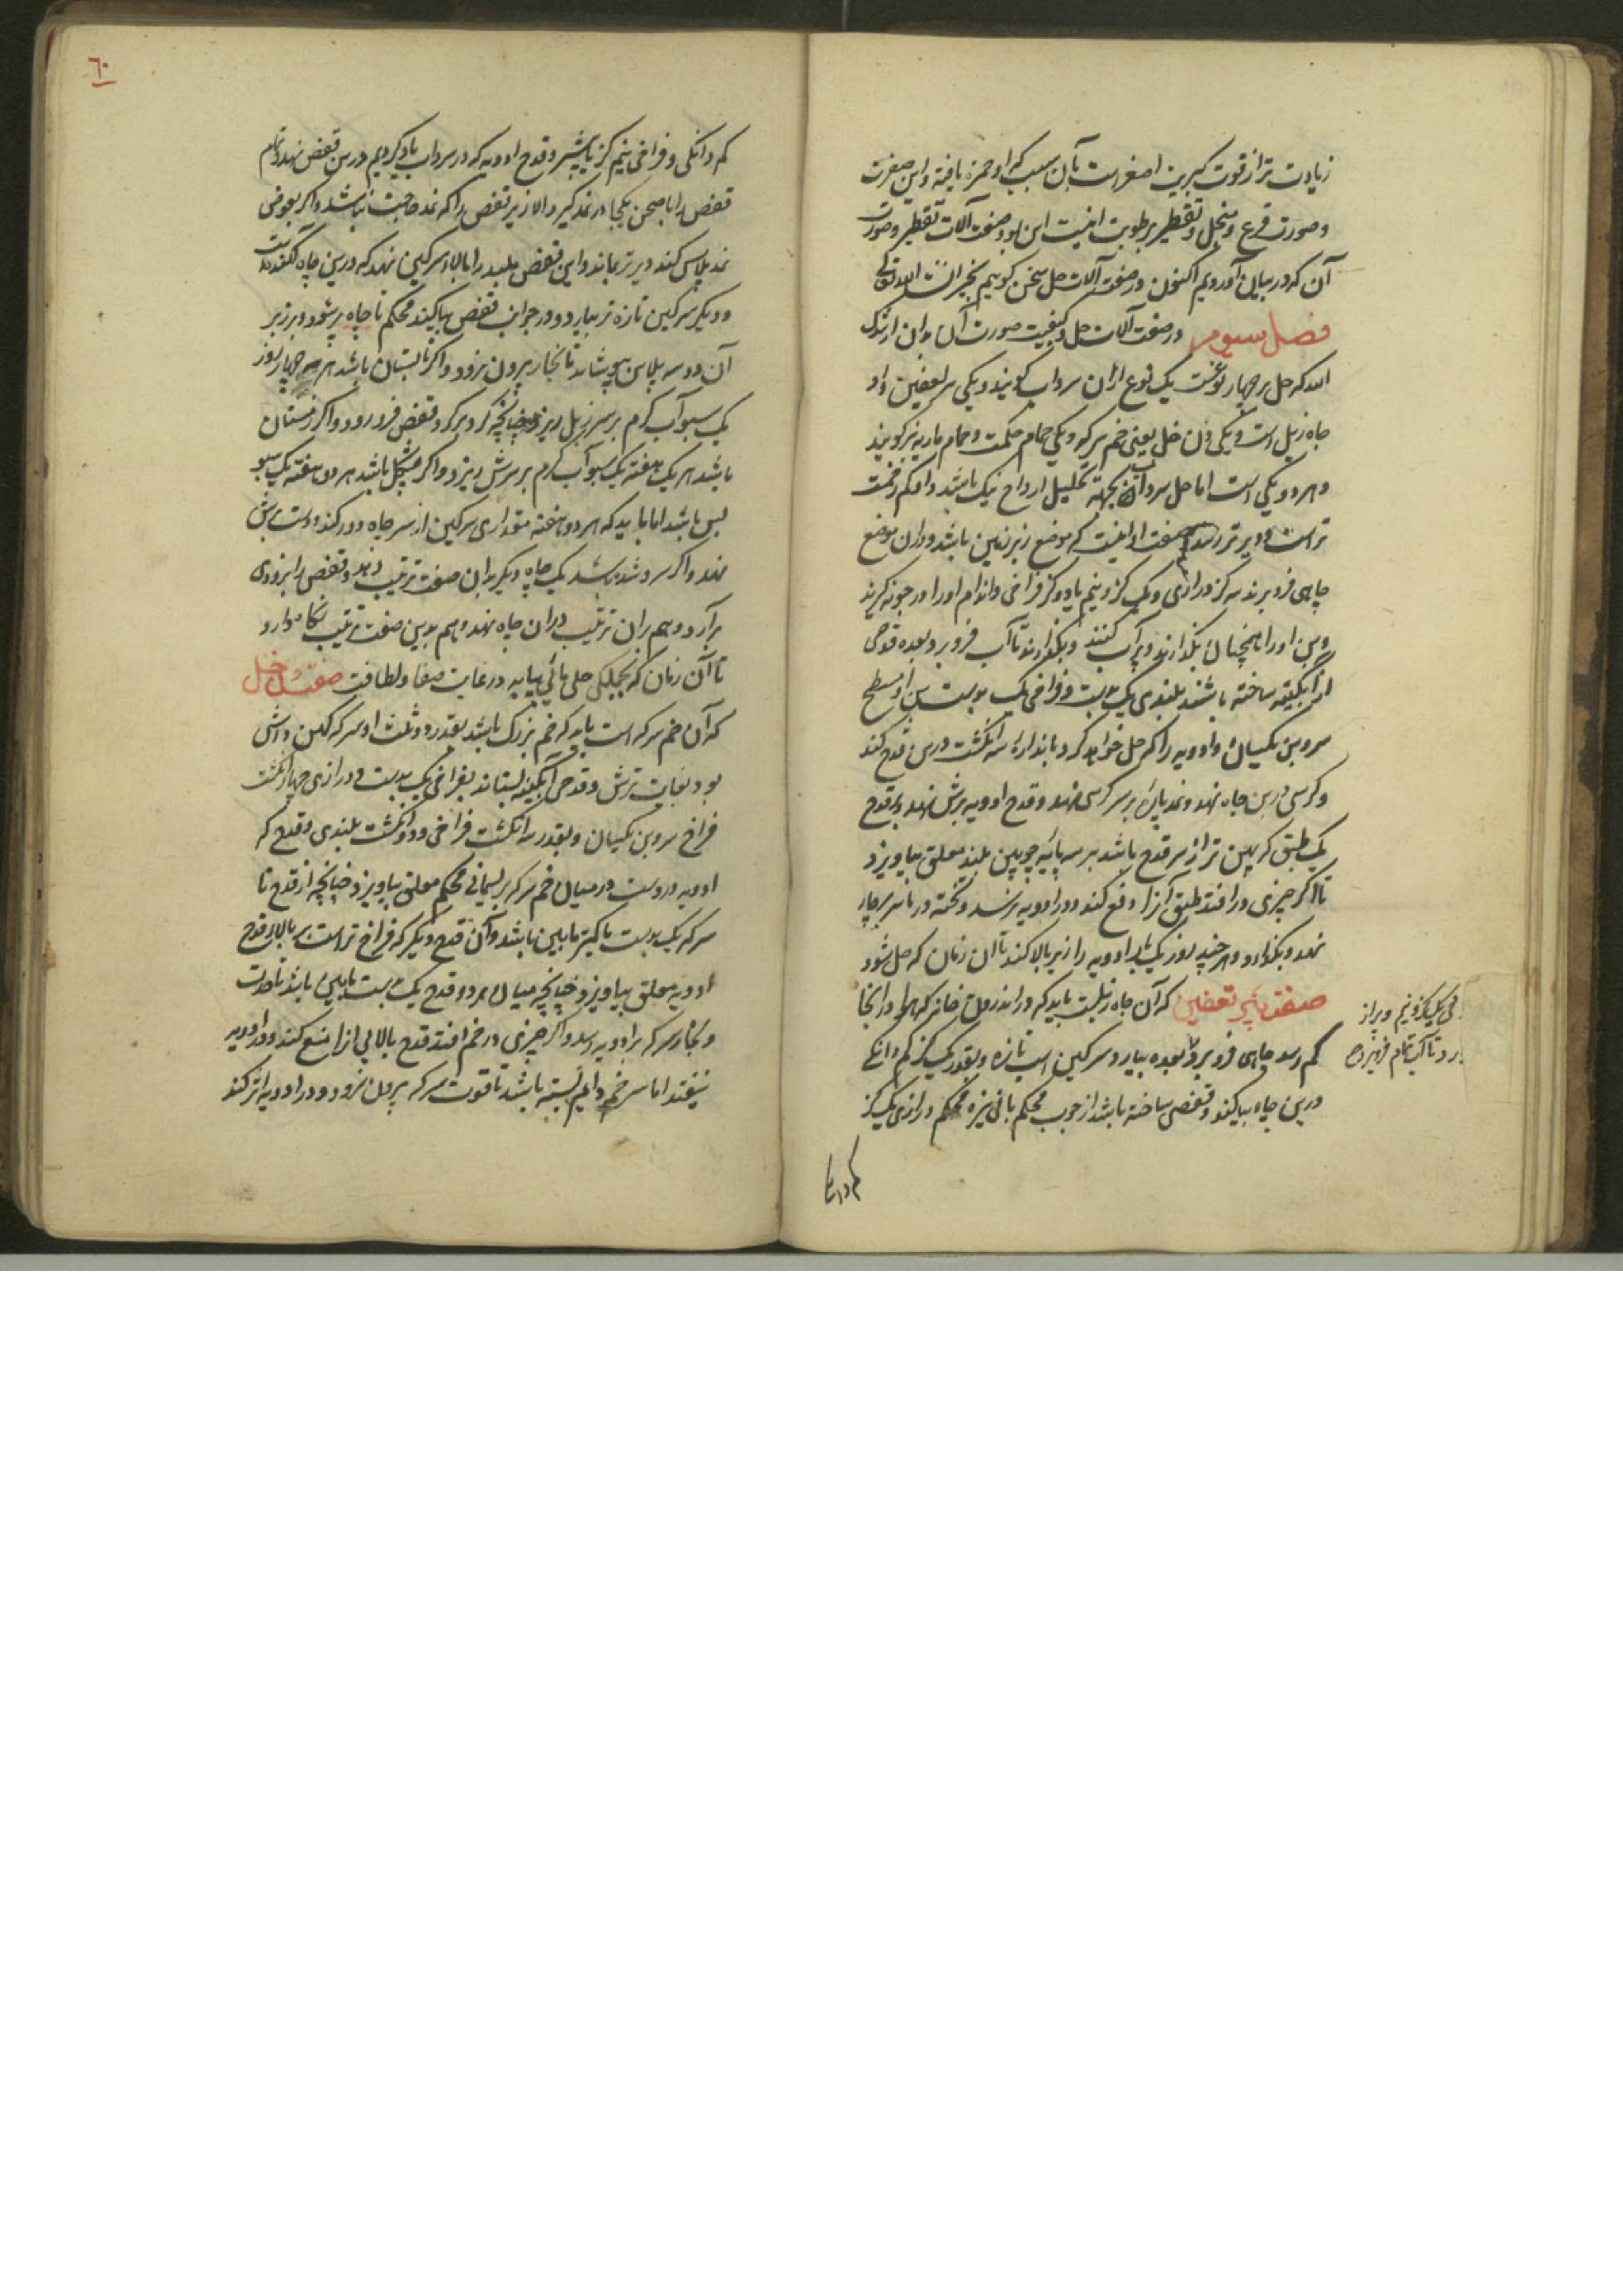 زیادت تر از قوت کبریت اصفر است بآن سبب که او حمرة یافته و این صفرت
و صورت قرع و منجل و تقطیر برطوبت اینست این بود صفت آلات تقطیر و صورت
آن که در بیان آوردیم اکنون در صفت آلات حل سخن کوییم بخیر ان شاء الله تعالی
فصل سیوم در صفت آلات حل و کیفیت صورت آن بدان ارشدک
الله که حل بر چهار نوعست یک نوع ازان سرداب کویند و یکی بیر تعفین و او
چاه زبل است و یکی دن خل یعنی خم سرکه و یکی حمام حکمت و حمام ماریه نیز کویند
و هر دو یکی است اما حل سرداب بجهة تحلیل ارواح نیک باشد و او کم زحمت
تر است و دیرتر رسد و صفت او اینست که موضع زیر زمین باشد و دران موضع
چاهی فرو برند سه کز درازی و یک کز و نیم یا دو کز فراخی و اندام او را در چونه کیرند
و بن او را همچنان بکذارند و پر آب کنند و بکذارند تا آب فرو برد بعده قدحی
از آبکینه ساخته باشند بلندی یک بدست و فراخی یک بدست بن او مسطح
سر و بن یکسان و ادویه را که حل خواهد کرد باندازه سه انکشت در بن قدح کند
و کرسی در بن چاه نهد و نمد پاره بر سر کرسی نهد و قدح ادویه برش نهد و بر قدح
یک طبق که پهن تر از سر قدح باشد بر سه پایه چوبین بلند معلق بیاویزد
تا اکر چیزی در افتد طبق آنرا دفع کند و در ادویه نرسد و تخته در ناسر بر چاه
نهد و بکذارد و هر چند روز یک بار ادویه را زیر بالا کند تا آن زمان که حل شود
صفت بئر تعفین که آن چاه زبلست باید که در اندرون خانه که هوا در آنجا
کم رسد چاهی فرو برد و بعده بیارد سرکین اسب تازه و بقدر یک کز کم دانکی
در بن چاه بیاکند و قفصی ساخته باشد از چوب محکم یا نی نیزه محکم درازی یک کز
فی یک کز و نیم و پر از
رد تا آب تمام فرو برد
کم دانکی
٦٠
کم دانکی و فراخی نیم کز یا بیشتر و قدح ادویه که در سرداب یاد کردیم در بن قفص نهد و تمام
قفص را با صحن یکجا در نمد کیرد الا زیر قفص را که نمد حاجت نباشد و اکر بعوض
نمد پلاس کند دیرتر بماند و این قفص ملبد را بالا سرکین نهد که در بن چاه آکنده است
و دیکر سرکین تازه تر بیارد و در جوانب قفص بیاکند محکم تا چاه پر شود و بر زبر
آن دو سه پلاس بپوشاند تا بخار بیرون نرود و اکر تابستان باشد هر سه چهار روز
یک سبو آب کرم بر سر زبل ریزد چنانچه کرد بر کرد قفص فرو رود و اکر زمستان
باشد هر یک هفته یک سبو آب کرم بر سرش ریزد و اکر مشکل باشد هر دو هفته یک سبو
بس باشد اما باید که هر دو هفته مقداری سرکین از سر چاه دور کند و دست برش
نهد و اکر سرد شده باشد یک چاه دیکر بدان صفت ترتیب دهد و قفص را بزودی
برآرد و هم بران ترتیب دران چاه نهد و هم بدین صفت ترتیب نکاه دارد
تا آن زمان که بجملکی حلی مائی بیابد در غایت صفا و لطافت صفت دن خل
که آن خم سرکه است باید که خم بزرک باشد بقدر دو ثلث او سرکه کهن و آتشی
بود بغایت ترش و قدحی آبکینه بستاند بفراخی یک بدست و درازی چهار انکشت
فراخ سر و بن یکسان و بقدر سه انکشت فراخی و دو انکشت بلندی و قدح که
ادویه دروست در میان خم سرکه بریسمانی محکم معلق بیاویزد چنانچه از قدح تا
سرکه یک بدست یا کمتر مابین باشد و آن قدح دیکر که فراخ تر است بر بالای قدح
ادویه معلق بیاویزد چنانچه میان هر دو قدح یک بدست مابین باشد تا حدت
و بخار سرکه بر ادویه رسد و اکر چیزی در خم افتد قدح بالایی انرا منع کند و در ادویه
نیفتد اما سر خم دایم بسته باشد تا قوت سرکه بیرون نرود و در ادویه اثر کند